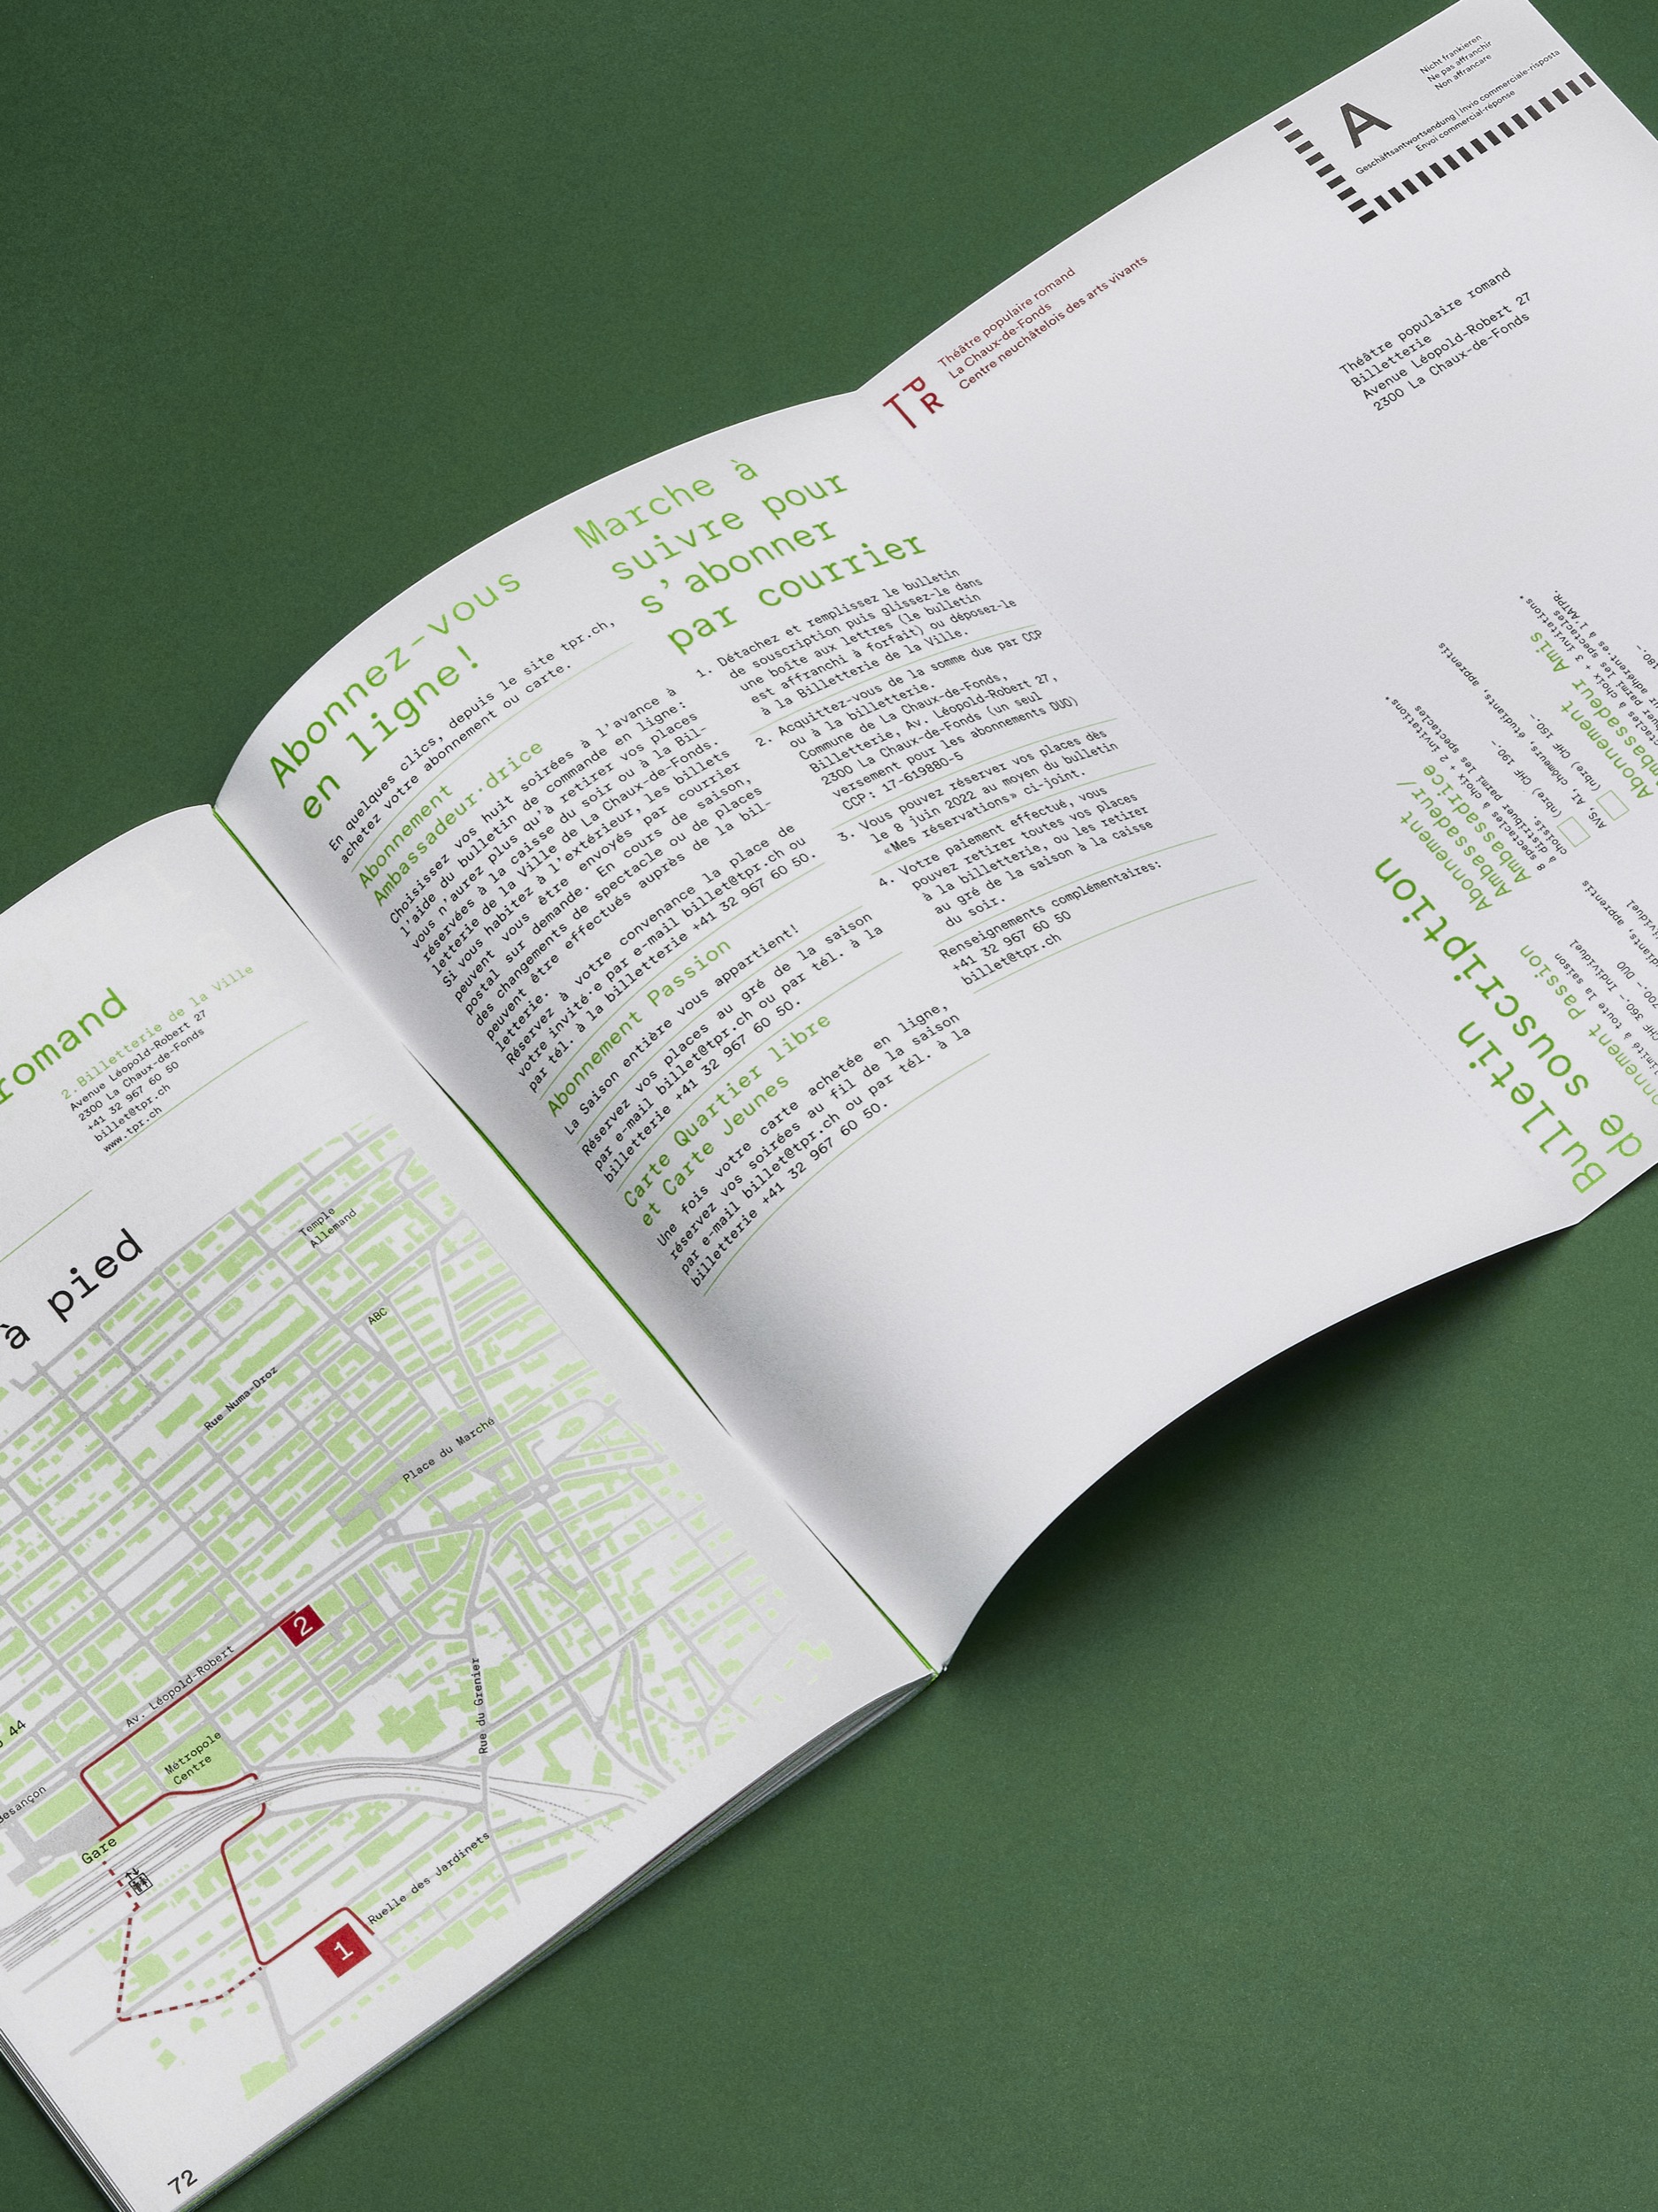 romand
2. Billetterie de la Ville
Avenue Léopold-Robert 27
2300 La Chaux-de-Fonds
+41 32 967 60 50
billet@tpr.ch
www.tpr.ch
à pied
Temple
Allemand
ABC
Rue Numa-Droz
Place du Marché
2
Av. Léopold-Robert
Rue du Grenier
44
Métropole
Centre
Besançon
Gare
Ruelle des Jardinets
1
72
Abonnez-vous
en ligne!
En quelques clics, depuis le site tpr.ch,
achetez votre abonnement ou carte.
Abonnement
Ambassadeur·drice
Choisissez vos huit soirées à l'avance à
l'aide du bulletin de commande en ligne:
vous n'aurez plus qu'à retirer vos places
réservées à la caisse du soir ou à la Bil-
letterie de la Ville de La Chaux-de-Fonds.
Si vous habitez à l'extérieur, les billets
peuvent vous être envoyés par courrier
postal sur demande. En cours de saison,
des changements de spectacle ou de places
peuvent être effectués auprès de la bil-
letterie.
Réservez à votre convenance la place de
votre invité·e par e-mail billet@tpr.ch ou
par tél. à la billetterie +41 32 967 60 50.
Abonnement Passion
La Saison entière vous appartient!
Réservez vos places au gré de la saison
par e-mail billet@tpr.ch ou par tél. à la
billetterie +41 32 967 60 50.
Carte Quartier libre
et Carte Jeunes
Une fois votre carte achetée en ligne,
réservez vos soirées au fil de la saison
par e-mail billet@tpr.ch ou par tél. à la
billetterie +41 32 967 60 50.
Marche à
suivre pour
s'abonner
par courrier
1. Détachez et remplissez le bulletin
de souscription puis glissez-le dans
une boîte aux lettres (le bulletin
est affranchi à forfait) ou déposez-le
à la Billetterie de la Ville.
2. Acquittez-vous de la somme due par CCP
ou à la billetterie.
Commune de La Chaux-de-Fonds,
Billetterie, Av. Léopold-Robert 27,
2300 La Chaux-de-Fonds (un seul
versement pour les abonnements DUO)
CCP: 17-619880-5
3. Vous pouvez réserver vos places dès
le 8 juin 2022 au moyen du bulletin
«Mes réservations» ci-joint.
4. Votre paiement effectué, vous
pouvez retirer toutes vos places
à la billetterie, ou les retirer
au gré de la saison à la caisse
du soir.
Renseignements complémentaires:
+41 32 967 60 50
billet@tpr.ch
TPR
Théâtre populaire romand
La Chaux-de-Fonds
Centre neuchâtelois des arts vivants
Nicht frankieren
Ne pas affranchir
Non affrancare
A
Geschäftsantwortsendung | Invio commerciale-risposta
Envoi commercial-réponse
Théâtre populaire romand
Billetterie
Avenue Léopold-Robert 27
2300 La Chaux-de-Fonds
Bulletin
de souscription
Abonnement
Ambassadeur/
Ambassadrice
8 spectacles à choix + 2 invitations*
à distribuer parmi les spectacles
choisis.
(nbre) CHF 190.-
(nbre) CHF 150.-
AVS, AI, chômeurs, étudiants, apprentis
Abonnement
Ambassadeur Amis